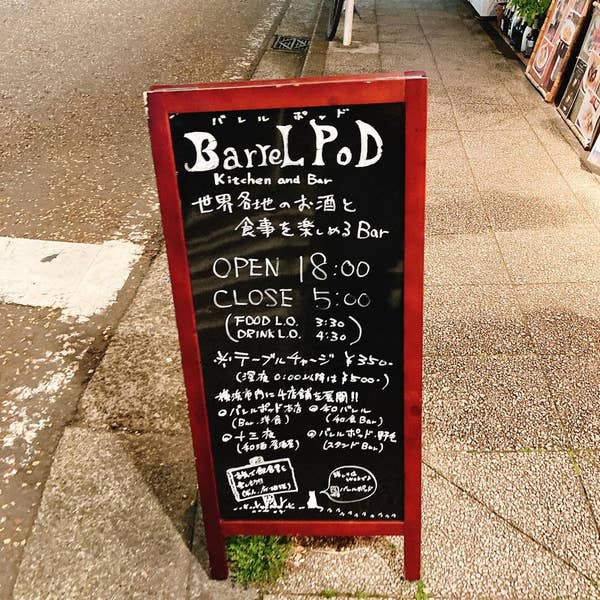 バレルポッド
BarreL PoD
Kitchen and Bar
世界各地のお酒と
食事を楽しめるBar
OPEN 18:00
CLOSE 5:00
(FOOD L.O. 3:30
DRINK L.O. 4:30)
※テーブルチャージ ¥350-
(深夜0:00以降は¥500-)
横浜市内に4店舗を展開!!
バレルポッド本店 和バレル
(Bar・洋食) (和食Bar)
十三夜 バレルポッド・野毛
(和酒居酒屋) (スタンドBar)
バレルポッド